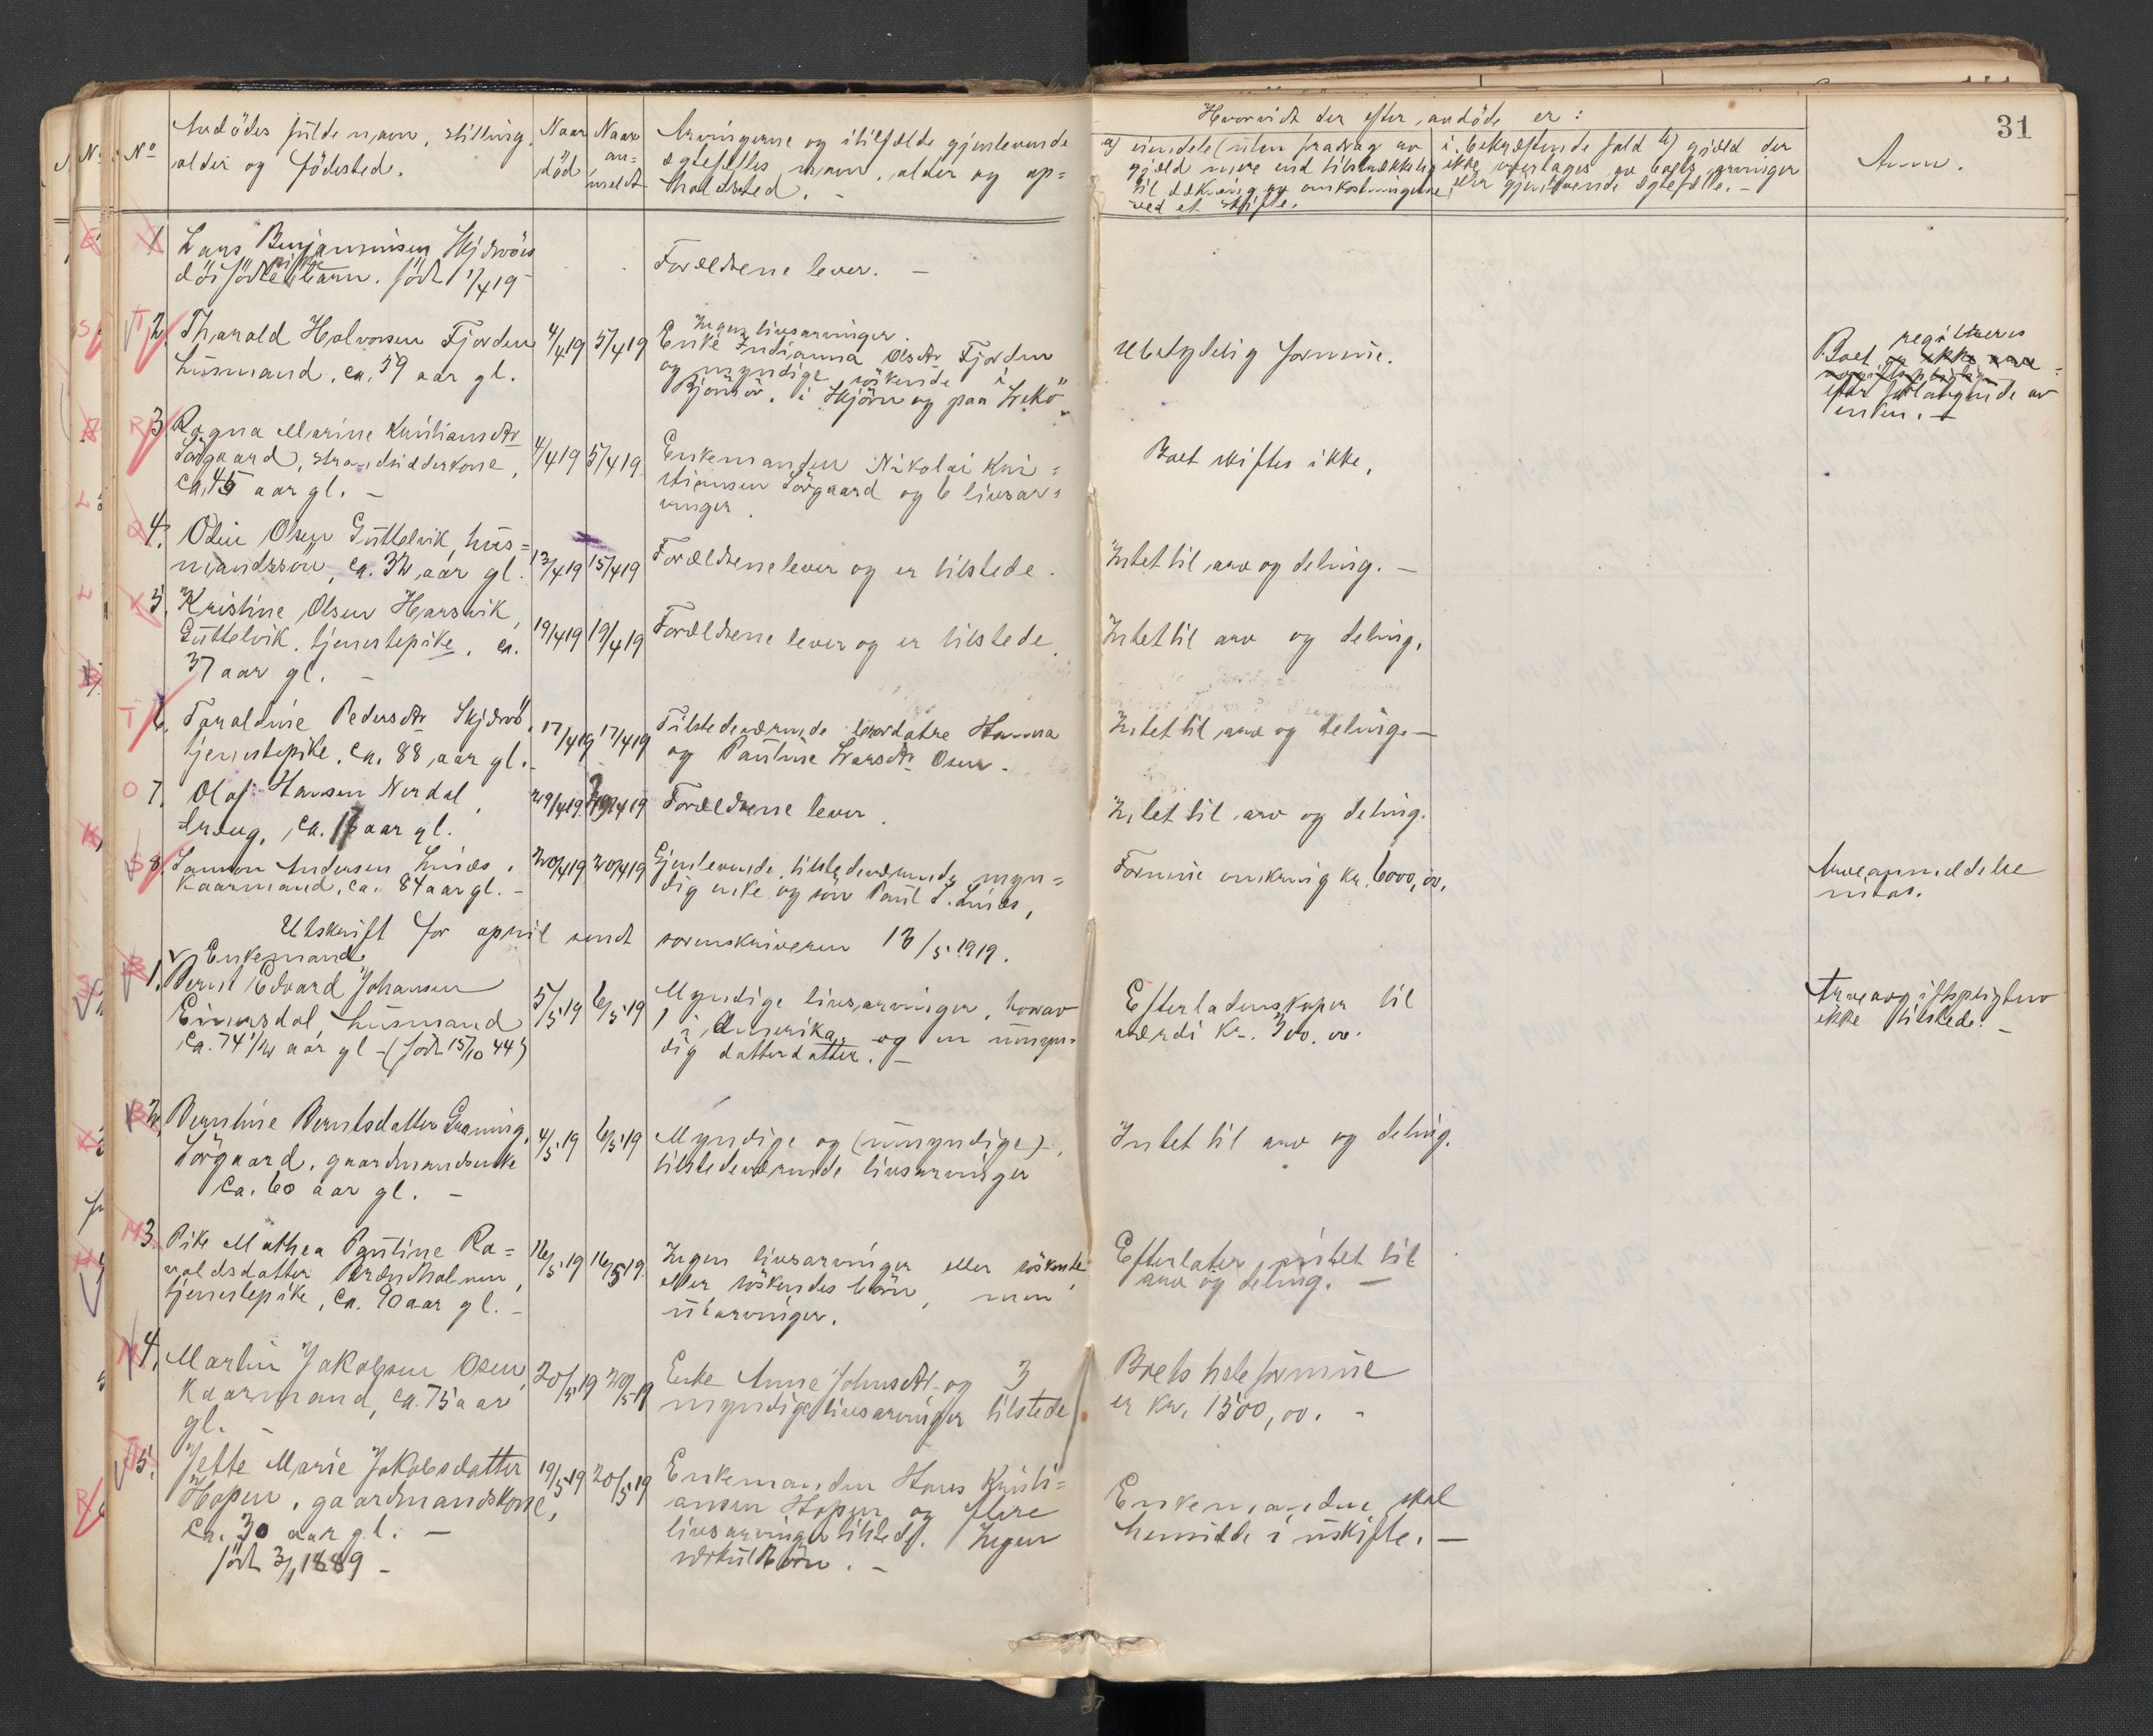 31
No
Avdödes fulde navn, stilling,
alder og födested.
Naar
död
Naar
an-
meldt
Arvingerne og i tilfælde gjenlevende
ægtefælles navn, alder og op-
holdssted. -
Hvorvidt der efter avdöde er:
a) eiendele (uten fradrag av
gjæld mere end tilstrækkelig
til dækning av omkostningerne
ved et skifte.
i bekræftende fald b) gjæld der
ikke overtages av boets arvinger
eller gjenlevende ægtefælle. -
Anm.
1
Lars Benjaminsen Skjærvöis
dödfödte pikebarn. född 1/4 19
Forældrene lever. -
2
Tharald Halvorsen Fjorden
husmand, ca. 59 aar gl.
4/4 19
5/4 19
Ingen livsarvinger.
Enke Indianna Olsdtr Fjorden
og myndige söskende i
Bjönör, i Skjörn og paa Frekö
Ubetydelig formue.
registreres
Boet
efter forlangende av
enken. -
3
Ragna Marine Kristiansdtr
Sörgaard, strandsidderkone,
ca. 45 aar gl. -
4/4 19
5/4 19
Enkemanden Nikolai Kri-
stiansen Sörgaard og 6 livsar-
vinger.
Boet skiftes ikke.
4.
Otin Olsen Guttelvik, hus-
mandssön, ca. 32 aar gl.
13/4 19
15/4 19
Forældrene lever og er tilstede.
Intet til arv og deling. -
5.
Kristine Olsen Harsvik,
Guttelvik, tjenestepike, ca.
37 aar gl. -
19/4 19
19/4 19
Forældrene lever og er tilstede.
Intet til arv og deling.
6.
Taraldine Pedersdtr Skjærvö,
tjenestepike, ca. 88 aar gl. -
17/4 19
17/4 19
Tilstedeværende brordötre Hanna
og Pauline Iversdtr Osen.
Intet til arv og deling. -
7.
Olaf Hansen Nordal,
dreng, ca. 17 aar gl.
29/4 19
29/4 19
Forældrene lever.
Intet til arv og deling.
8.
Samson Andersen Linæs,
Kaarmand, ca. 84 aar gl. -
20/4 19
20/4 19
Gjenlevende, tilstedeværende myn-
dig enke og sön Paul S. Linæs,
Formue omkring kr. 6000,00.
Arveanmeldelse
mottas.
Utskrift for april sendt sorenskriveren 13/5 1919.
1.
Enkemand
Bernt Edvard Johansen
Einarsdal, husmand
ca. 74 1/2 aar gl - (född 15/10 44)
5/5 19
6/5 19
Myndige livsarvinger, hvorav
1 i Amerika, og en umyn-
dig datterdatter. -
Efterladenskaper til
værdi kr. 300.00.
Arveavgiftspligten
ikke tilstede. -
2.
Berntine Berntsdatter Graning,
Sörgaard, gaardmandsenke
ca. 60 aar gl. -
4/5 19
6/5 19
Myndige og (umyndige),
tilstedeværende livsarvinger
Intet til arv og deling.
3.
Pike Mathea Pauline Ra-
valdsdatter Brandholmen,
tjenestepike, ca. 90 aar gl. -
16/5 19
16/5 19
Ingen livsarvinger eller söskende
eller söskendes börn, men
utarvinger.
Efterlater intet til
arv og deling. -
4.
Martin Jakobsen Osen,
Kaarmand, ca. 75 aar
gl. -
20/5 19
20/5 19
Enke Anne Johnsdtr og 3
myndige livsarvinger tilstede
Boets hele formue
er kr. 1500,00. -
5.
Jette Marie Jakobsdatter
Hopen, gaardmandskone,
ca. 30 aar gl. -
född 3/1 1889 -
19/5 19
20/5 19
Enkemanden Hans Kristi-
ansen Hopen og flere
livsarvinger tilstede. Ingen
særkuldbörn. -
Enkemanden skal
hensidde i uskifte. -